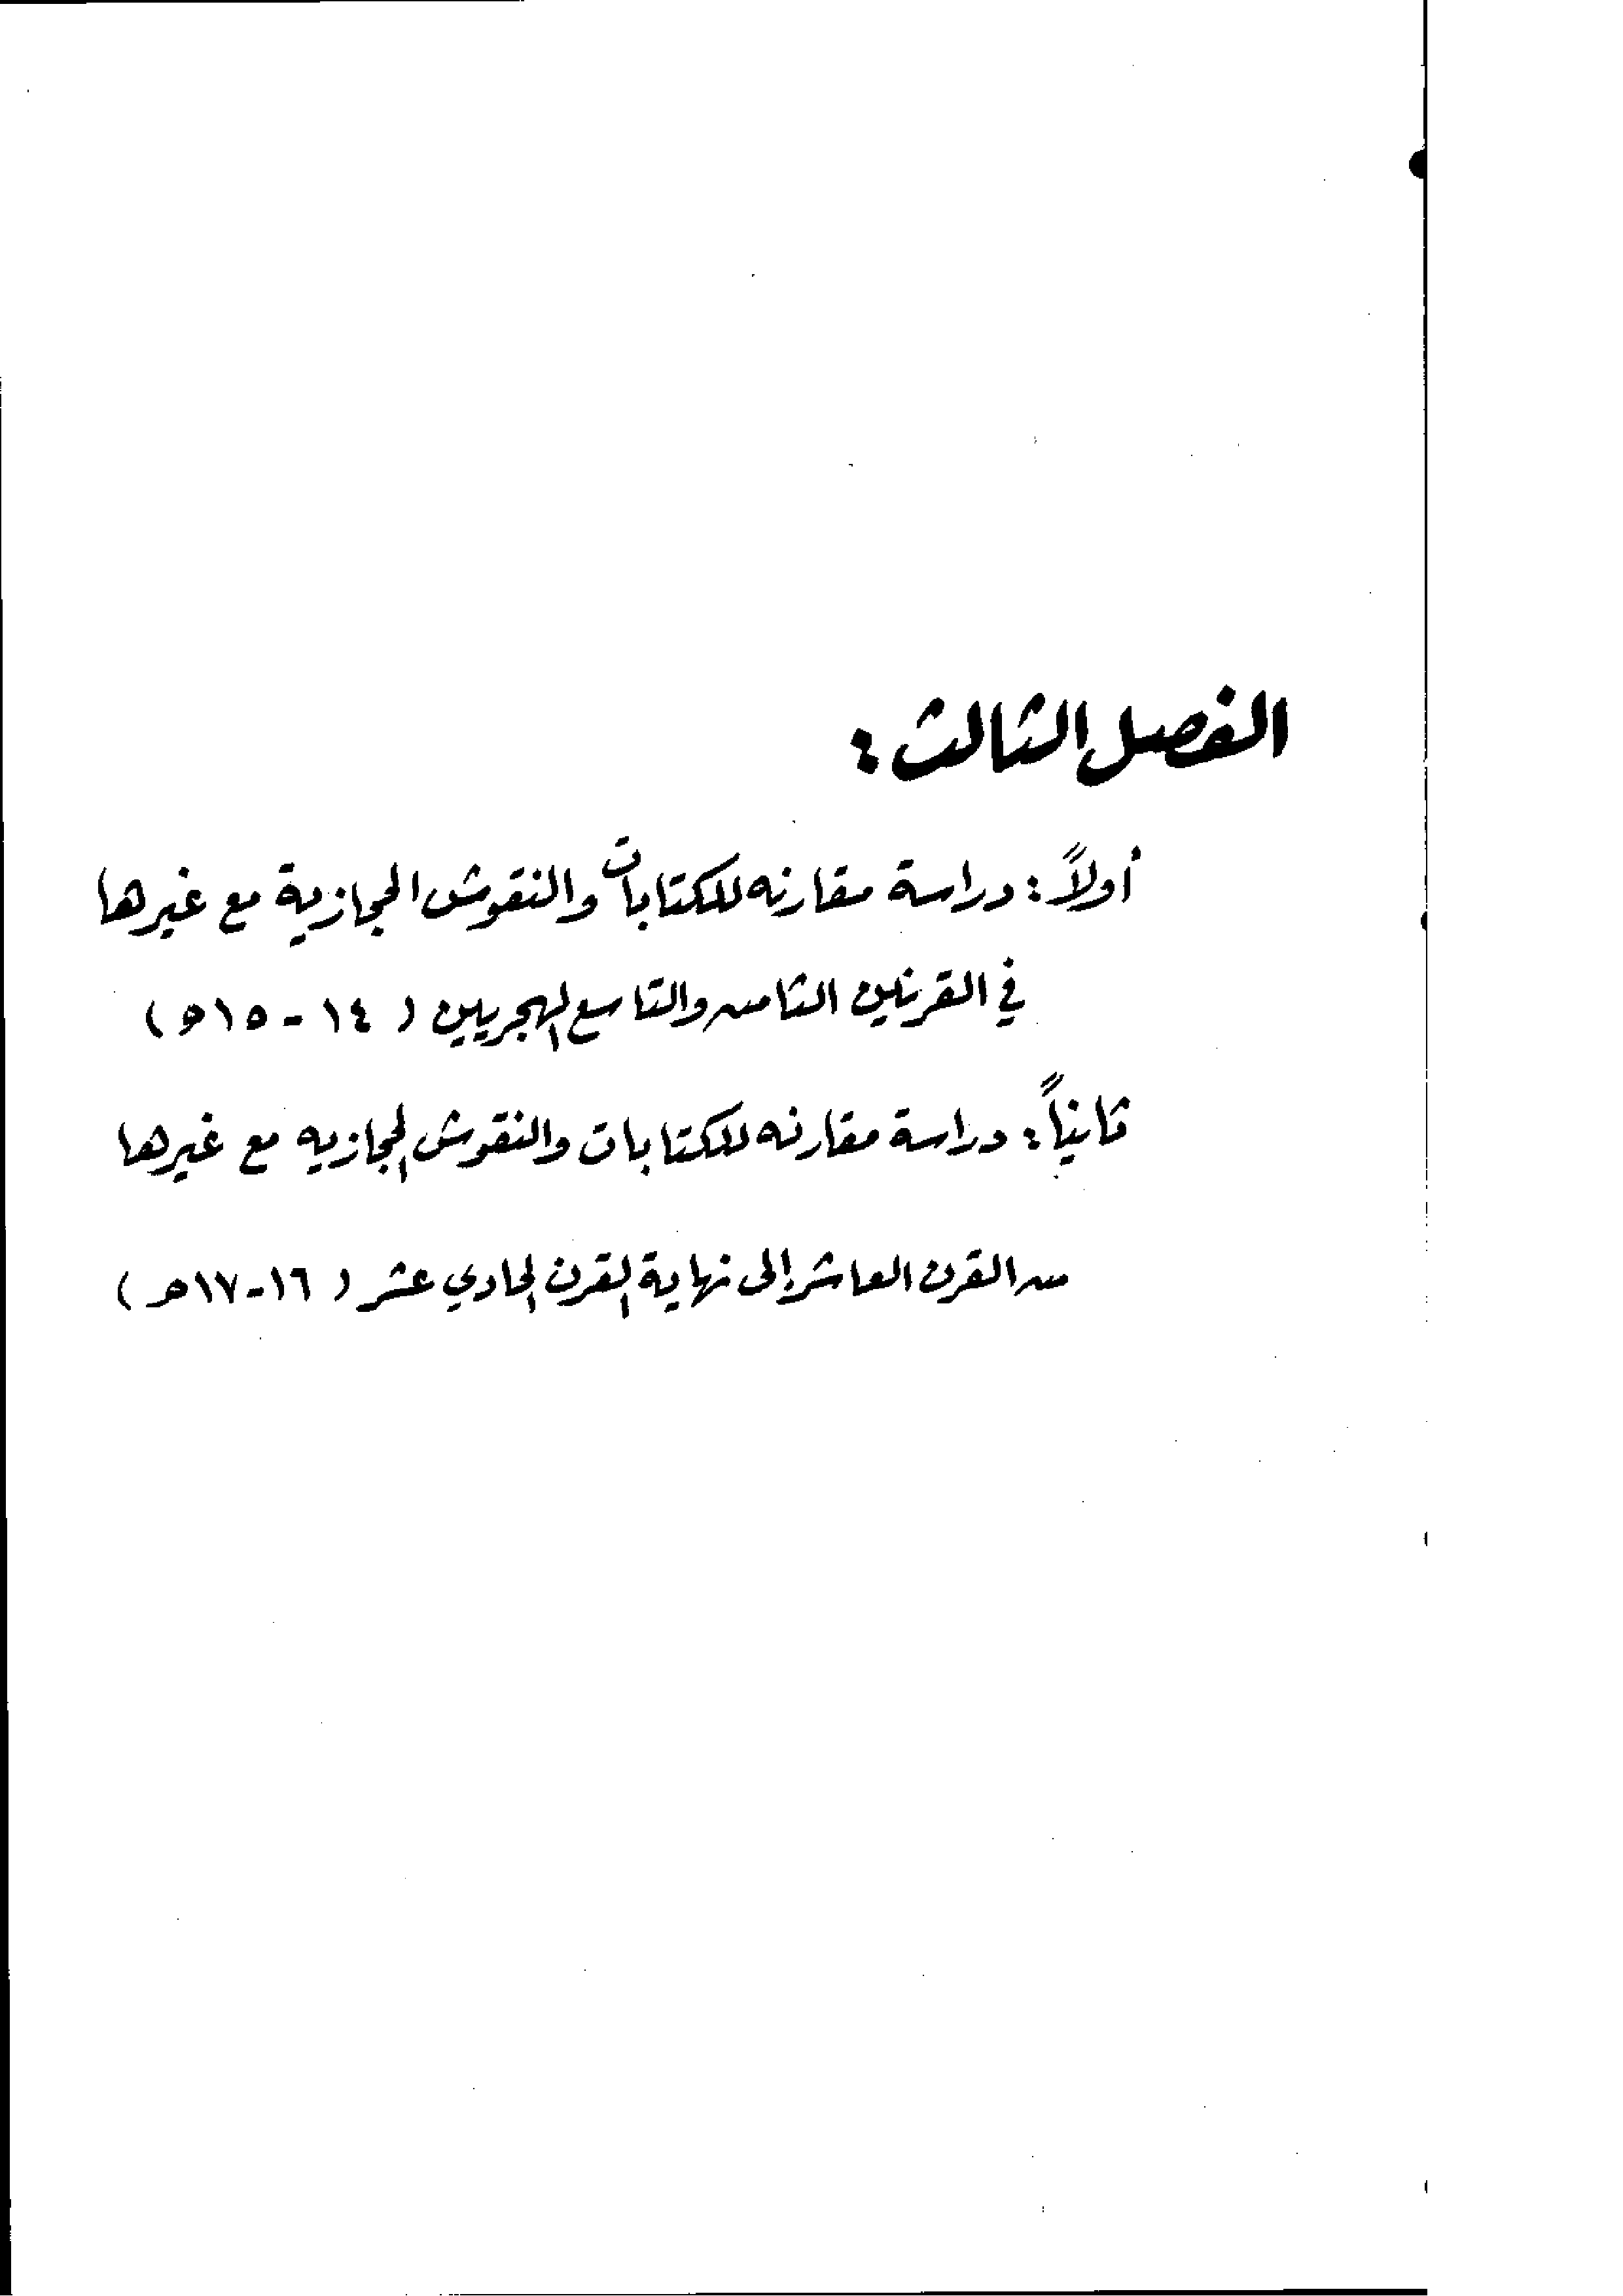 الفصل الثالث :
أولاً : دراسة مقارنه للكتابات والنقوش الحجازية مع غيرها
في القرنين الثامن والتاسع الهجريين ( ١٤ - ١٥ه )
ثانياً : دراسة مقارنه للكتابات والنقوش الحجازيه مع غيرها
من القرن العاشر إلى نهاية القرن الحادي عشر ( ١٦-١٧هـ )